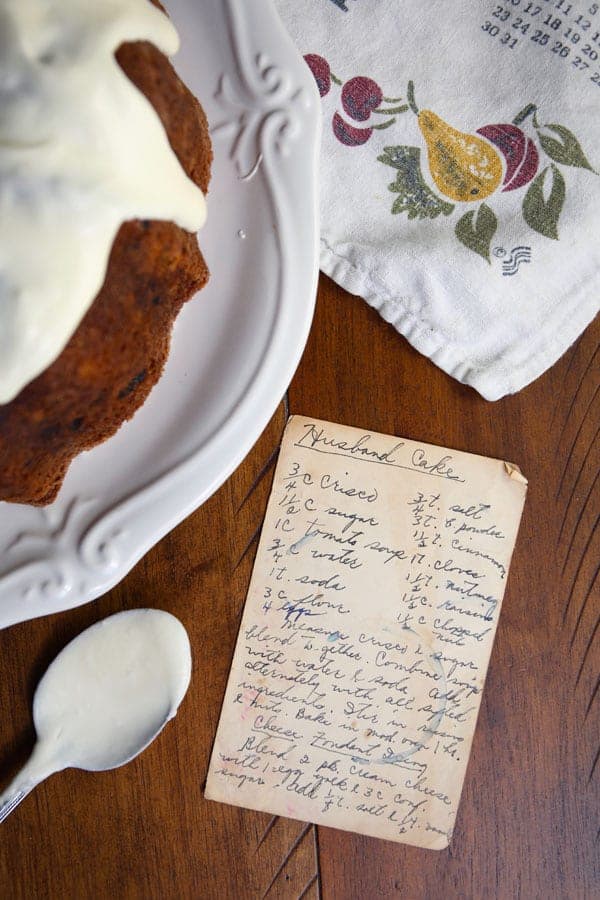 23 24 25 26 27
30 31
Husband Cake
3/4 C Crisco
1 1/2 C sugar
1 C tomato soup
3/4 C water
1 t. soda
3 C flour
4 eggs
3/4 t. salt
3 t. b. powder
1 1/2 t. cinnamon
1 t. cloves
1 1/2 t. nutmeg
1 1/2 c. raisins
1 1/2 c chopped
nut
Measure Crisco & sugar
blend to-gether. Combine soup
with water & soda. Add
alternately with all sifted
ingredients. Stir in raisins
& nuts. Bake in mod. oven 1 hr.
Cheese Fondant Icing
Blend 2 pk. cream cheese
with 1 egg yolk & 3 C conf.
sugar. add 1/8 t. salt &